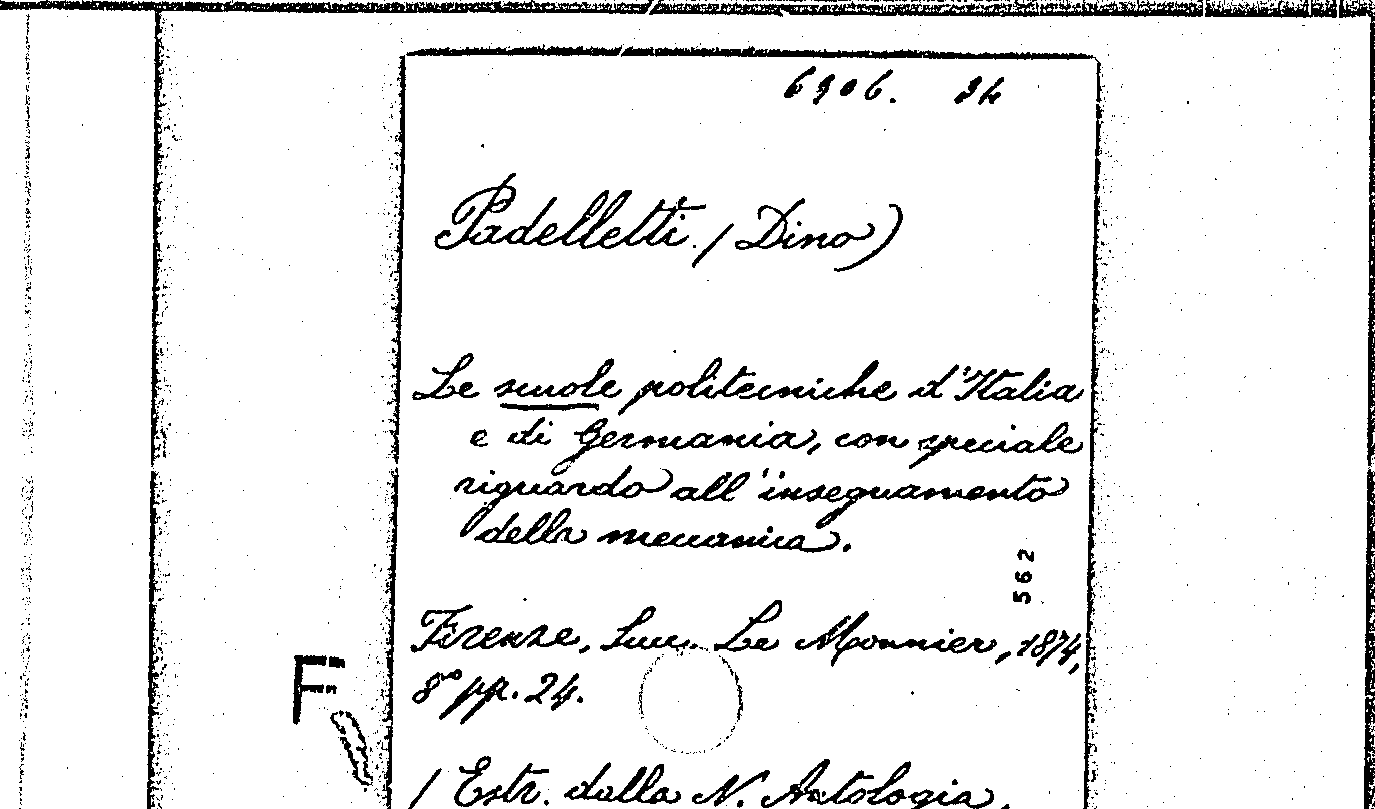 6906. 34
Padelletti (Dino)
Le scuole politecniche d'Italia
e di Germania, con speciale
riguardo all'insegnamento
della meccanica.
562
Firenze, Succ. Le Monnier, 1874,
8º pp. 24.
F
(Estr. dalla N. Antologia.